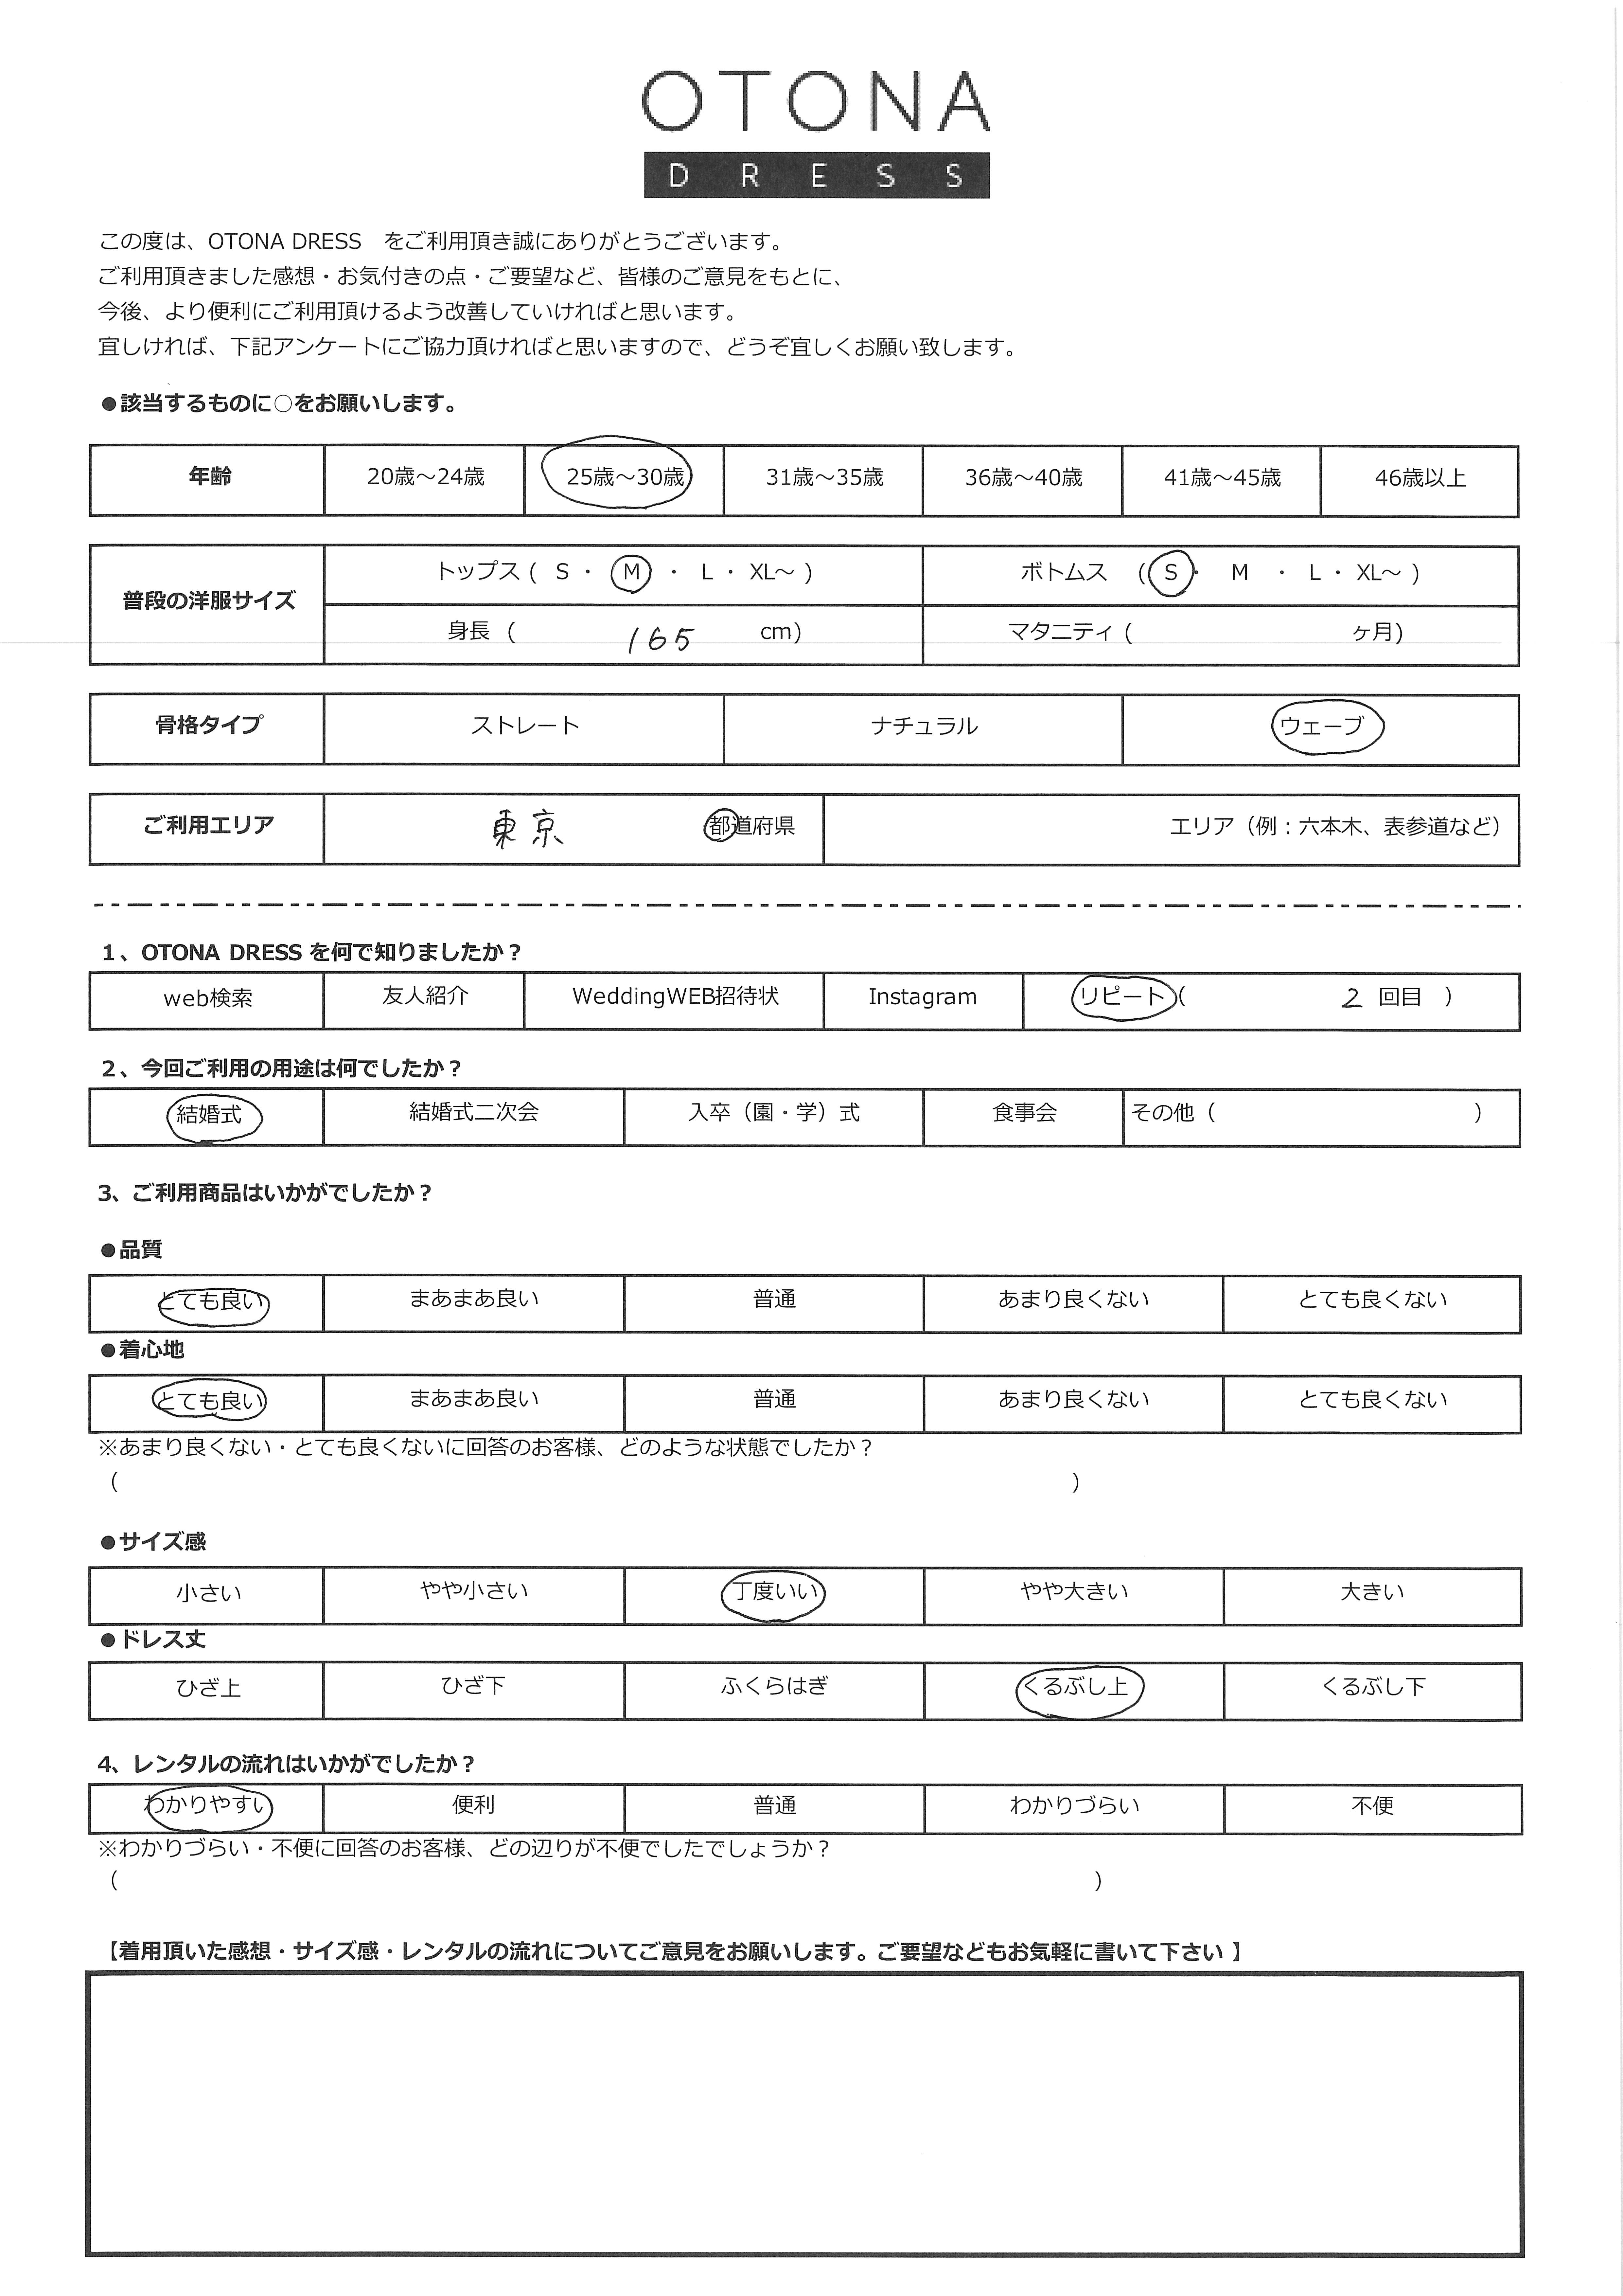 OTONA
DRESS
この度は、OTONA DRESS　をご利用頂き誠にありがとうございます。
ご利用頂きました感想・お気付きの点・ご要望など、皆様のご意見をもとに、
今後、より便利にご利用頂けるよう改善していければと思います。
宜しければ、下記アンケートにご協力頂ければと思いますので、どうぞ宜しくお願い致します。
●該当するものに○をお願いします。
年齢 20歳～24歳 25歳～30歳 31歳～35歳 36歳～40歳 41歳～45歳 46歳以上
普段の洋服サイズ トップス ( S ・ M ・ L ・ XL～ ) ボトムス ( S ・ M ・ L ・ XL～ )
身長 ( 165 cm) マタニティ ( ヶ月)
骨格タイプ ストレート ナチュラル ウェーブ
ご利用エリア 東京 都道府県 エリア（例：六本木、表参道など）
1、OTONA DRESS を何で知りましたか？
web検索 友人紹介 WeddingWEB招待状 Instagram リピート ( 2 回目 )
2、今回ご利用の用途は何でしたか？
結婚式 結婚式二次会 入卒（園・学）式 食事会 その他 ( )
3、ご利用商品はいかがでしたか？
●品質
とても良い まあまあ良い 普通 あまり良くない とても良くない
●着心地
とても良い まあまあ良い 普通 あまり良くない とても良くない
※あまり良くない・とても良くないに回答のお客様、どのような状態でしたか？
( )
●サイズ感
小さい やや小さい 丁度いい やや大きい 大きい
●ドレス丈
ひざ上 ひざ下 ふくらはぎ くるぶし上 くるぶし下
4、レンタルの流れはいかがでしたか？
わかりやすい 便利 普通 わかりづらい 不便
※わかりづらい・不便に回答のお客様、どの辺りが不便でしたでしょうか？
( )
【着用頂いた感想・サイズ感・レンタルの流れについてご意見をお願いします。ご要望などもお気軽に書いて下さい 】